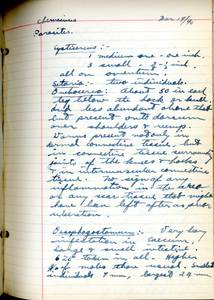 Dec 19/41
Parasites.
Cysticercus:-
1 medium one - one inch
3 small - ½ - ¾ inch
all on omentum.
Setaria:- two individuals.
Onchocerca: about 50 in each
leg below the hock or knee
but less abundant about that
but present onto dorsum
over shoulders & rump.
Worms present not only in
normal connective tissue but
in connective tissue surrounding
joints of the knees & hocks
& in intermuscular connective
tissue. No sign of any
inflammation in the area
or any scar tissue that might
have been left after as prior
ulceration.
Oesophagostomum:- Very heavy
infestation in caecum,
large & small intestine
620 taken in all. Higher
% of males than usual. Smallest
individuals 9 mm, largest 29 mm